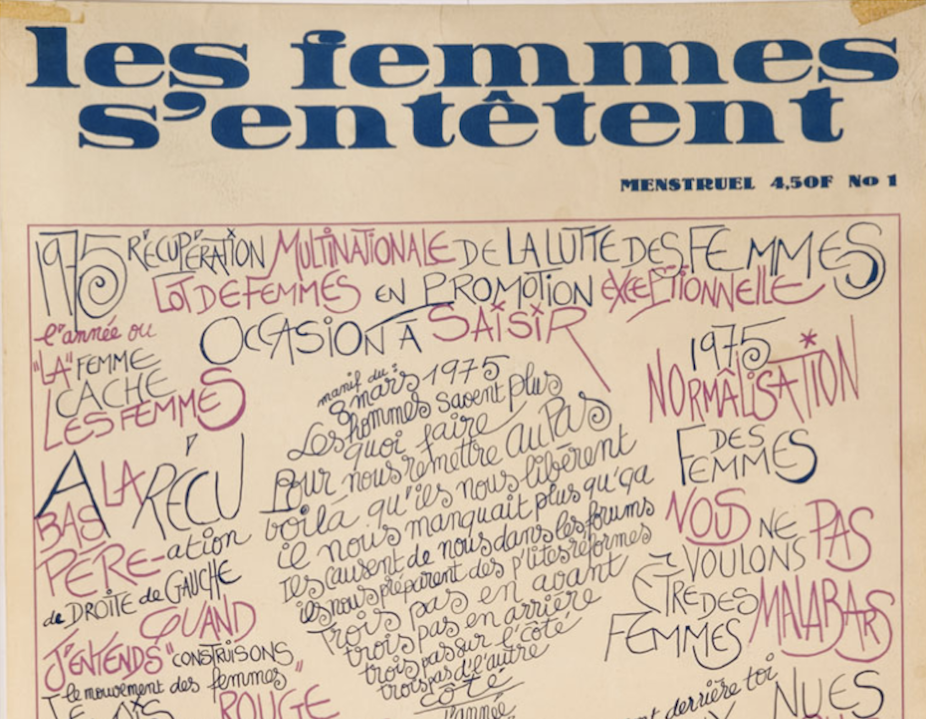 les femmes
s'entêtent
MENSTRUEL 4,50F No 1
1975 RÉCUPÉRATION MULTINATIONALE DE LA LUTTE DES FEMMES
LOT DE FEMMES EN PROMOTION EXCEPTIONNELLE
OCCASION À SAISIR
l'année ou
"LA" FEMME
CACHE
LES FEMMES
A LA RÉCU
BAS
PÉRE-ation
de DROITE de GAUCHE
QUAND
J'ENTENDS "CONSTRUISONS
le mouvement des femmes"
ROUGE
manif du:
8 mars 1975
Les hommes savent plus
quoi faire
Pour nous remettre au PAS
voilà qu'ils nous libèrent
il nous manquait plus qu'ça
Ils causent de nous dans les forums
ils nous préparent des p'tites réformes
Trois pas en avant
trois pas en arrière
trois pas sur l'côté
trois pas d'l'autre
côté
l'année
1975
NORMALISATION*
DES
FEMMES
NOUS NE PAS
VOULONS
ÊTRE DES MALABARS
FEMMES
derrière toi
NUES